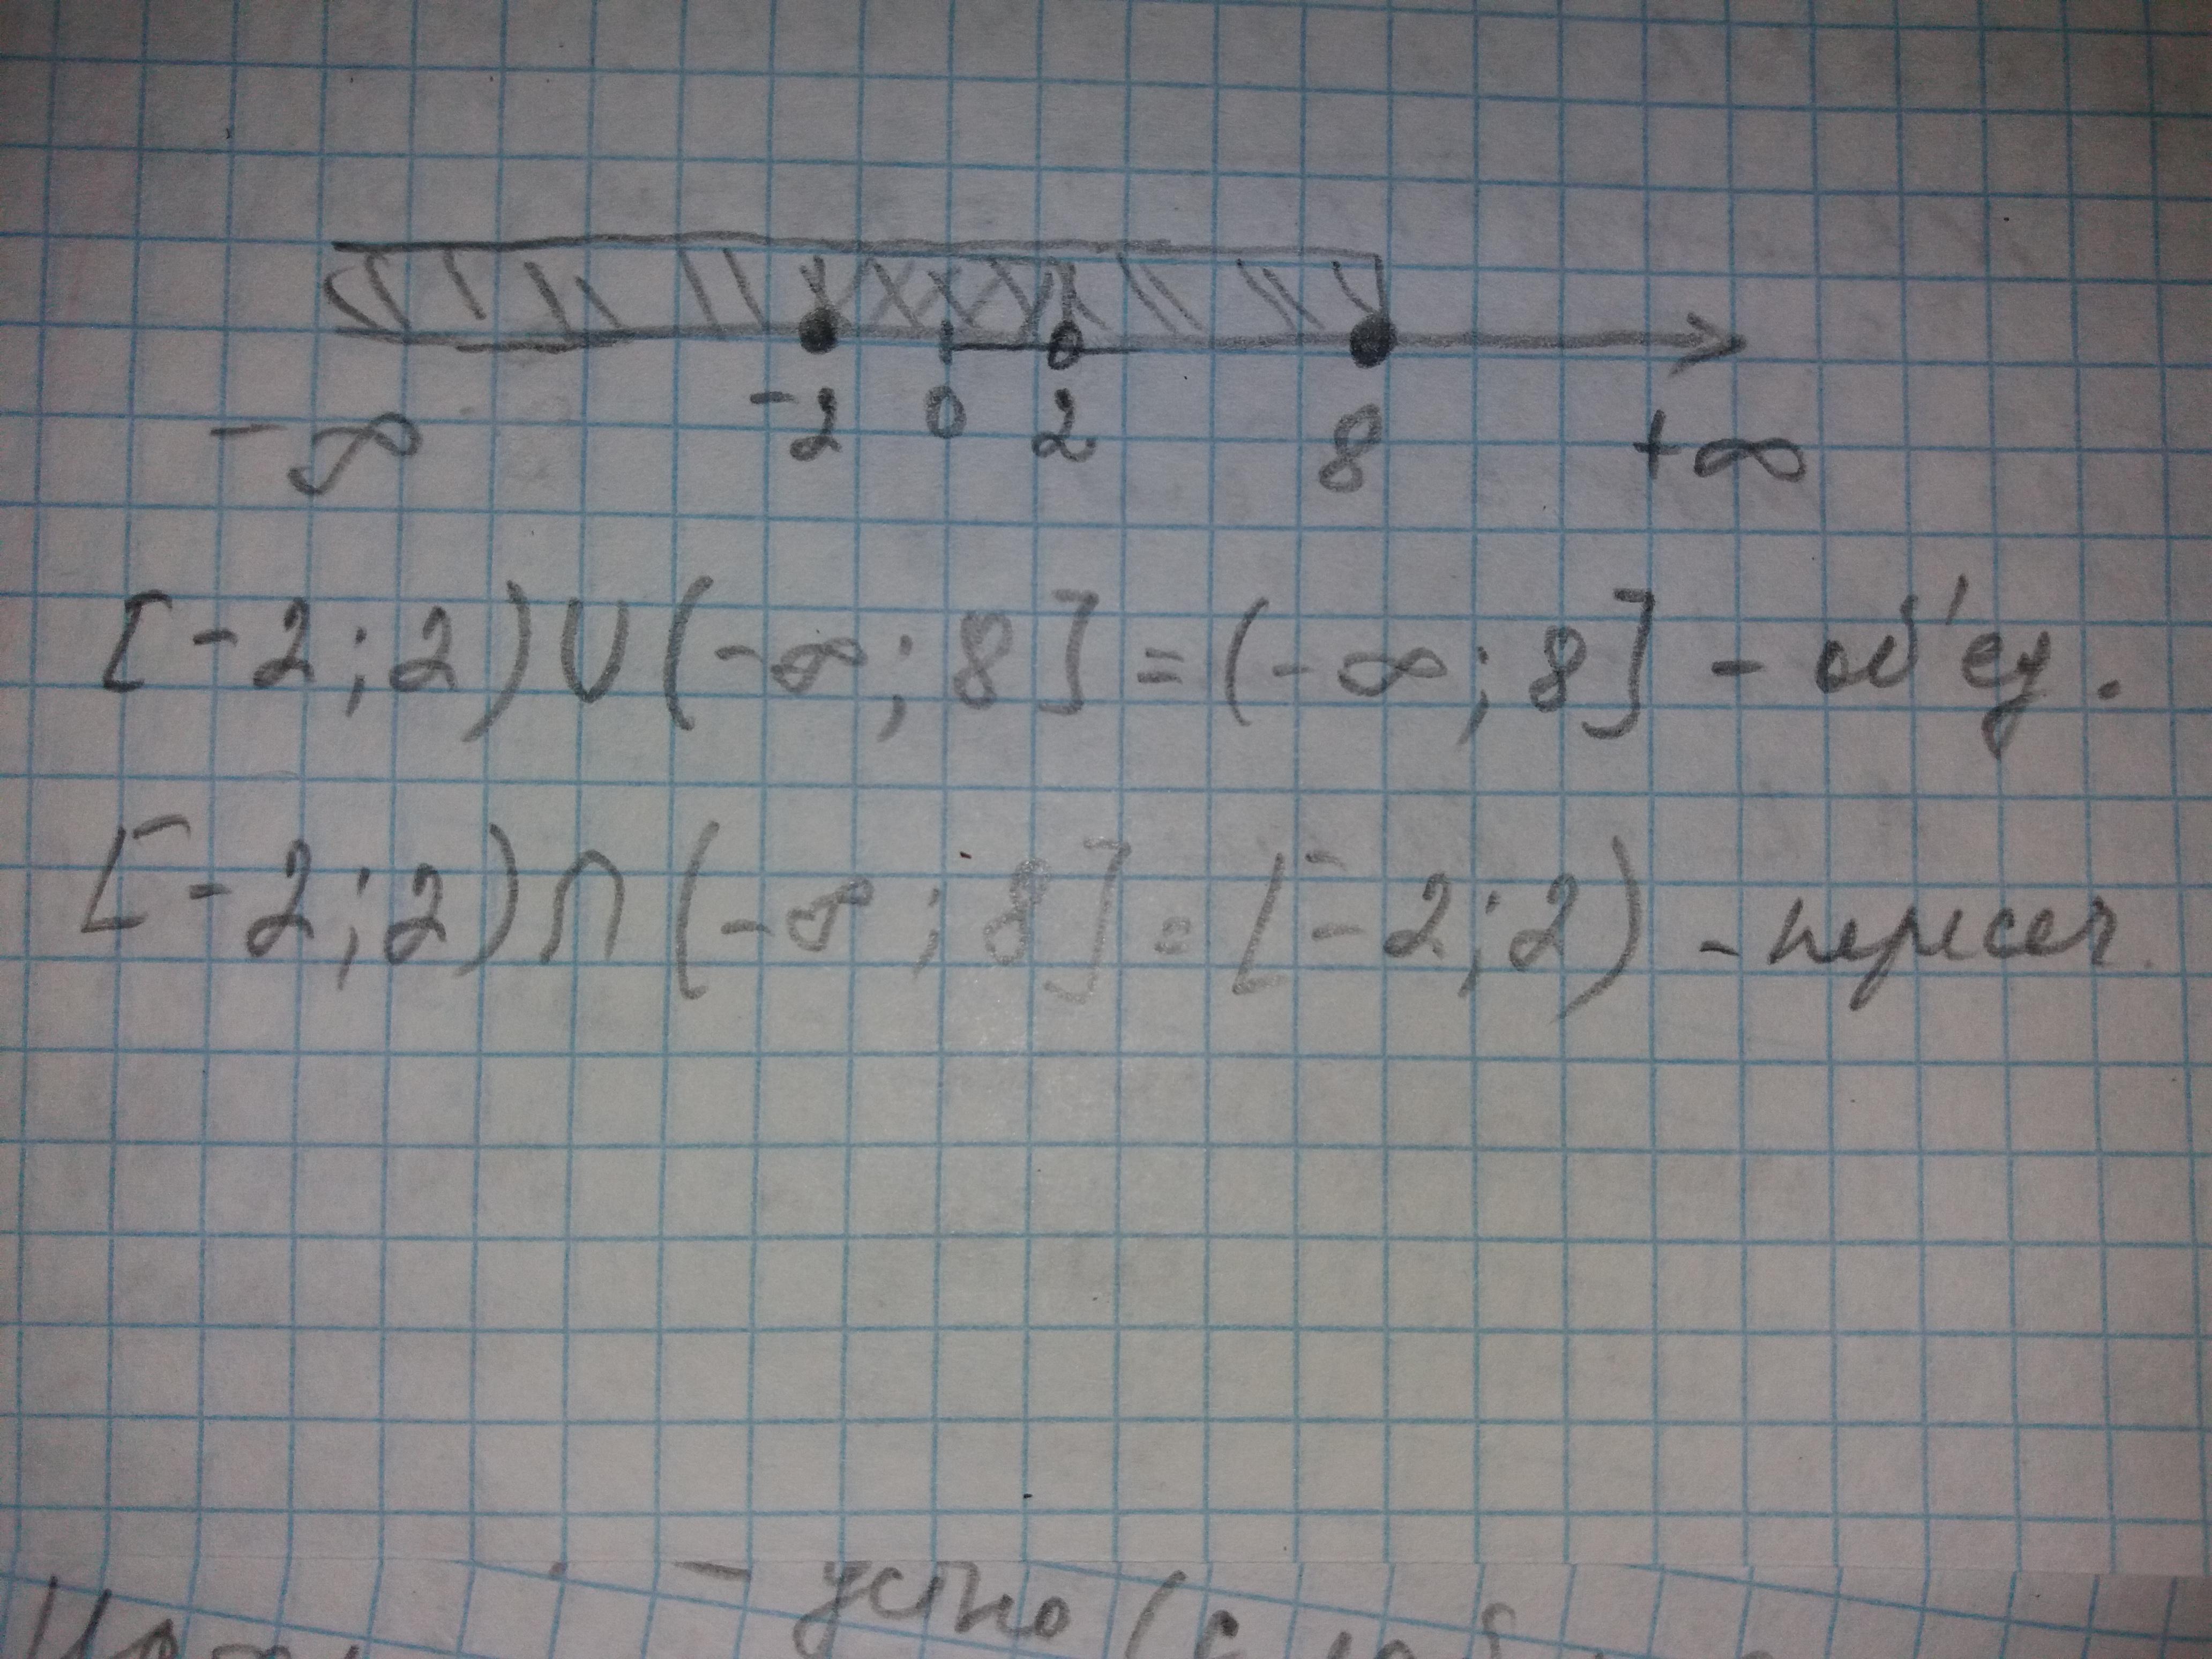 -∞ -2 0 2 8 +∞
[-2;2)∪(-∞;8]=(-∞;8] - об'ед.
[-2;2)∩(-∞;8]=[-2;2) - пересеч.
- устно (с